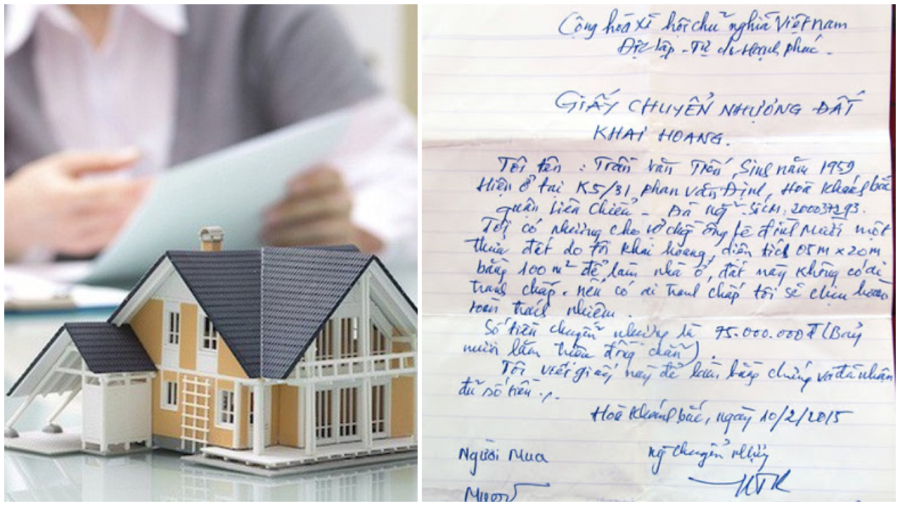 Cộng hoà xã hội chủ nghĩa Việt Nam
Độc lập - Tự do Hạnh phúc.
GIẤY CHUYỂN NHƯỢNG ĐẤT
KHAI HOANG.
Tôi tên : Trần Văn Trốn, Sinh năm 1959
Hiện ở tại K5/31, Phan Văn Định, Hoà Khánh bắc
quận Liên Chiểu - Đà nẵng Số CM, 200037293.
Tôi có nhường cho vợ chồng ông Lê đình Mười một
thửa đất do tôi khai hoang, diện tích 05m x 20m
bằng 100m² để làm nhà ở, đất này không có ai
tranh chấp. nếu có ai tranh chấp tôi sẽ chịu hoàn
toàn trách nhiệm.
Số tiền chuyển nhượng là 75.000.000đ (Bảy
mươi lăm triệu đồng chẵn).
Tôi viết giấy này để làm bằng chứng và đã nhận
đủ số tiền.
Hoà Khánh bắc, ngày 10/2/2015
Người Mua
ng chuyển nhượng
Mười